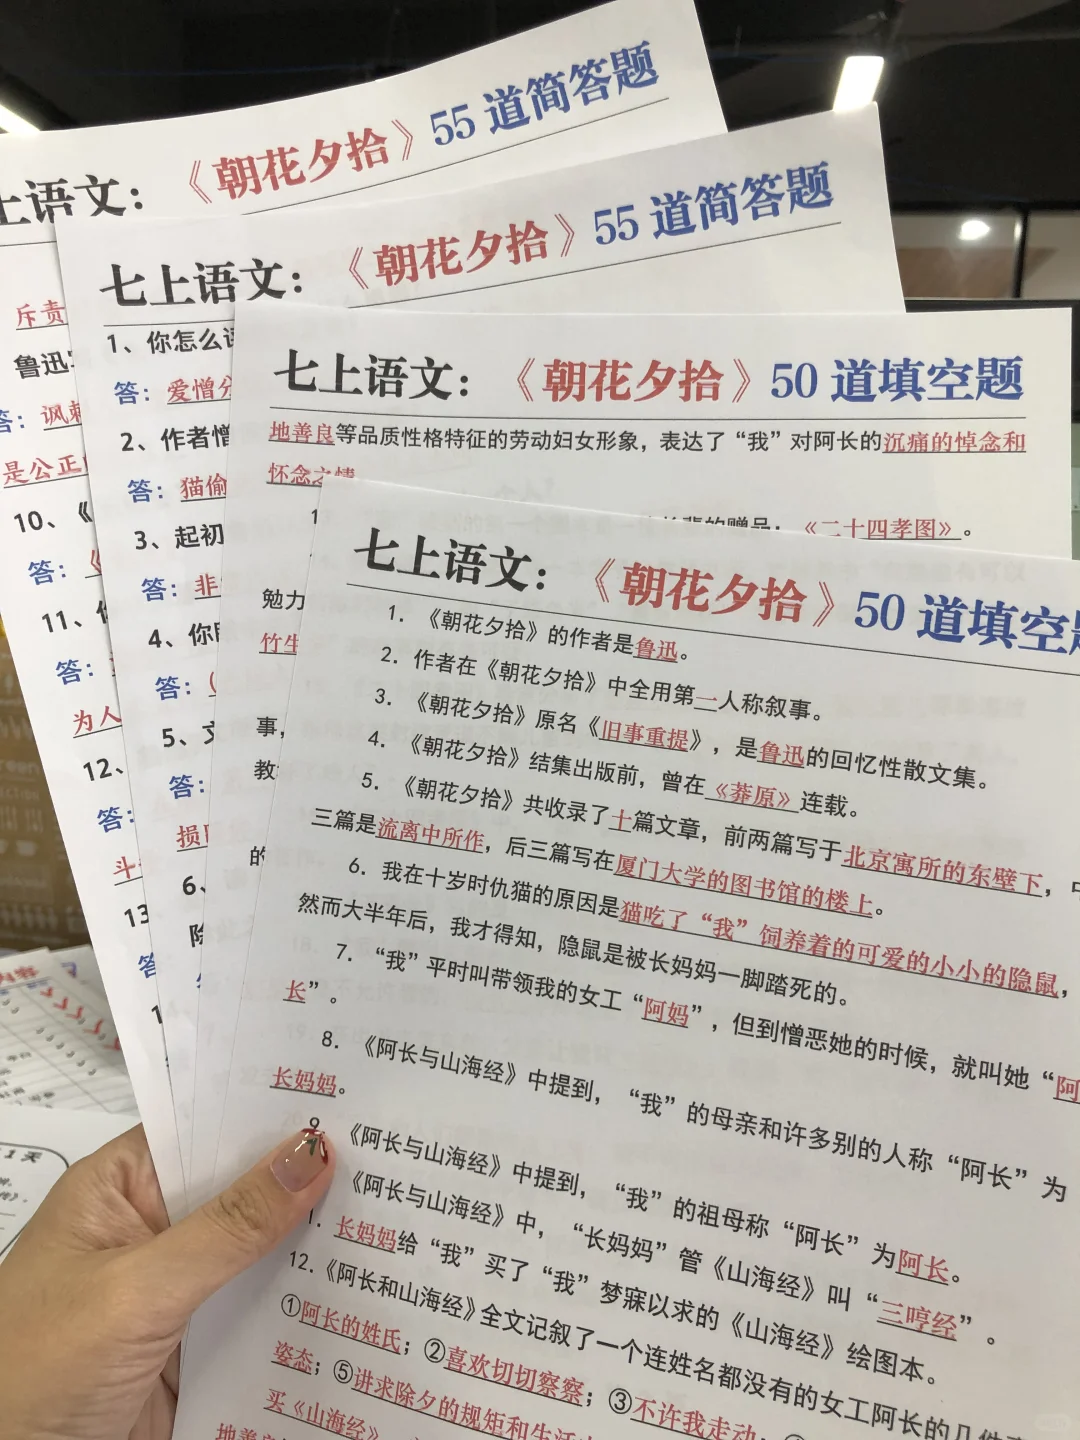 上语文：《朝花夕拾》55 道简答题
斥责
鲁迅
答：讽刺
是公正
10、《
答：《
11、
答：
为人
12、
答：
斗
13
答
七上语文：《朝花夕拾》55 道简答题
1、你怎么
答：爱憎分
2、作者憎
答：猫偷
3、起初
答：非
4、你
答：（
5、文
答：
损
6、
除
七上语文：《朝花夕拾》50 道填空题
地善良等品质性格特征的劳动妇女形象，表达了“我”对阿长的沉痛的悼念和
怀念之情
的赠品：《二十四孝图》。
勉力
竹生
事，
教
的
七上语文：《朝花夕拾》50 道填空题
1. 《朝花夕拾》的作者是鲁迅。
2. 作者在《朝花夕拾》中全用第一人称叙事。
3. 《朝花夕拾》原名《旧事重提》，是鲁迅的回忆性散文集。
4. 《朝花夕拾》结集出版前，曾在《莽原》连载。
5. 《朝花夕拾》共收录了十篇文章，前两篇写于北京寓所的东壁下，中
三篇是流离中所作，后三篇写在厦门大学的图书馆的楼上。
6. 我在十岁时仇猫的原因是猫吃了“我”饲养着的可爱的小小的隐鼠，
然而大半年后，我才得知，隐鼠是被长妈妈一脚踏死的。
7. “我”平时叫带领我的女工“阿妈”，但到憎恶她的时候，就叫她“阿
长”。
8. 《阿长与山海经》中提到，“我”的母亲和许多别的人称“阿长”为
长妈妈。
9 《阿长与山海经》中提到，“我”的祖母称“阿长”为阿长。
《阿长与山海经》中，“长妈妈”管《山海经》叫“三哼经”。
1. 长妈妈给“我”买了“我”梦寐以求的《山海经》绘图本。
12.《阿长和山海经》全文记叙了一个连姓名都没有的女工阿长的几件
①阿长的姓氏；②喜欢切切察察；③不许我走动；
姿态；⑤讲求除夕的规矩和生活
买《山海经》
地善良
1 天